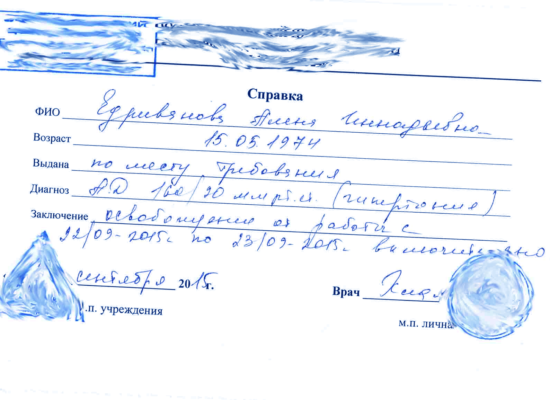 Справка
ФИО Едривянова Алена Геннадьевна
Возраст 15.05.1974
Выдана по месту требования
Диагноз А.Д 160/90 мм рт.ст. (гипертония)
Заключение освобождение от работы с
22/09-2015г. по 23/09-2015г. включительно
сентября 2015г.
Врач
м.п. учреждения
м.п. личн